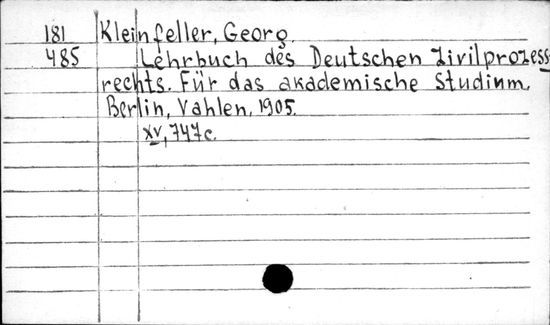 181 Kleinfeller, Georg.
485 Lehrbuch des Deutschen Zivilprozess
rechts. Für das akademische Studium.
Berlin, Vahlen, 1905.
XV, 747c.